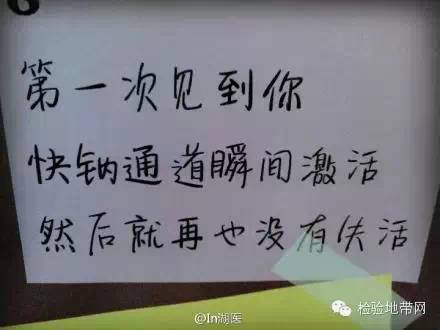 第一次见到你
快钠通道瞬间激活
然后就再也没有失活
@In湖医
检验地带网